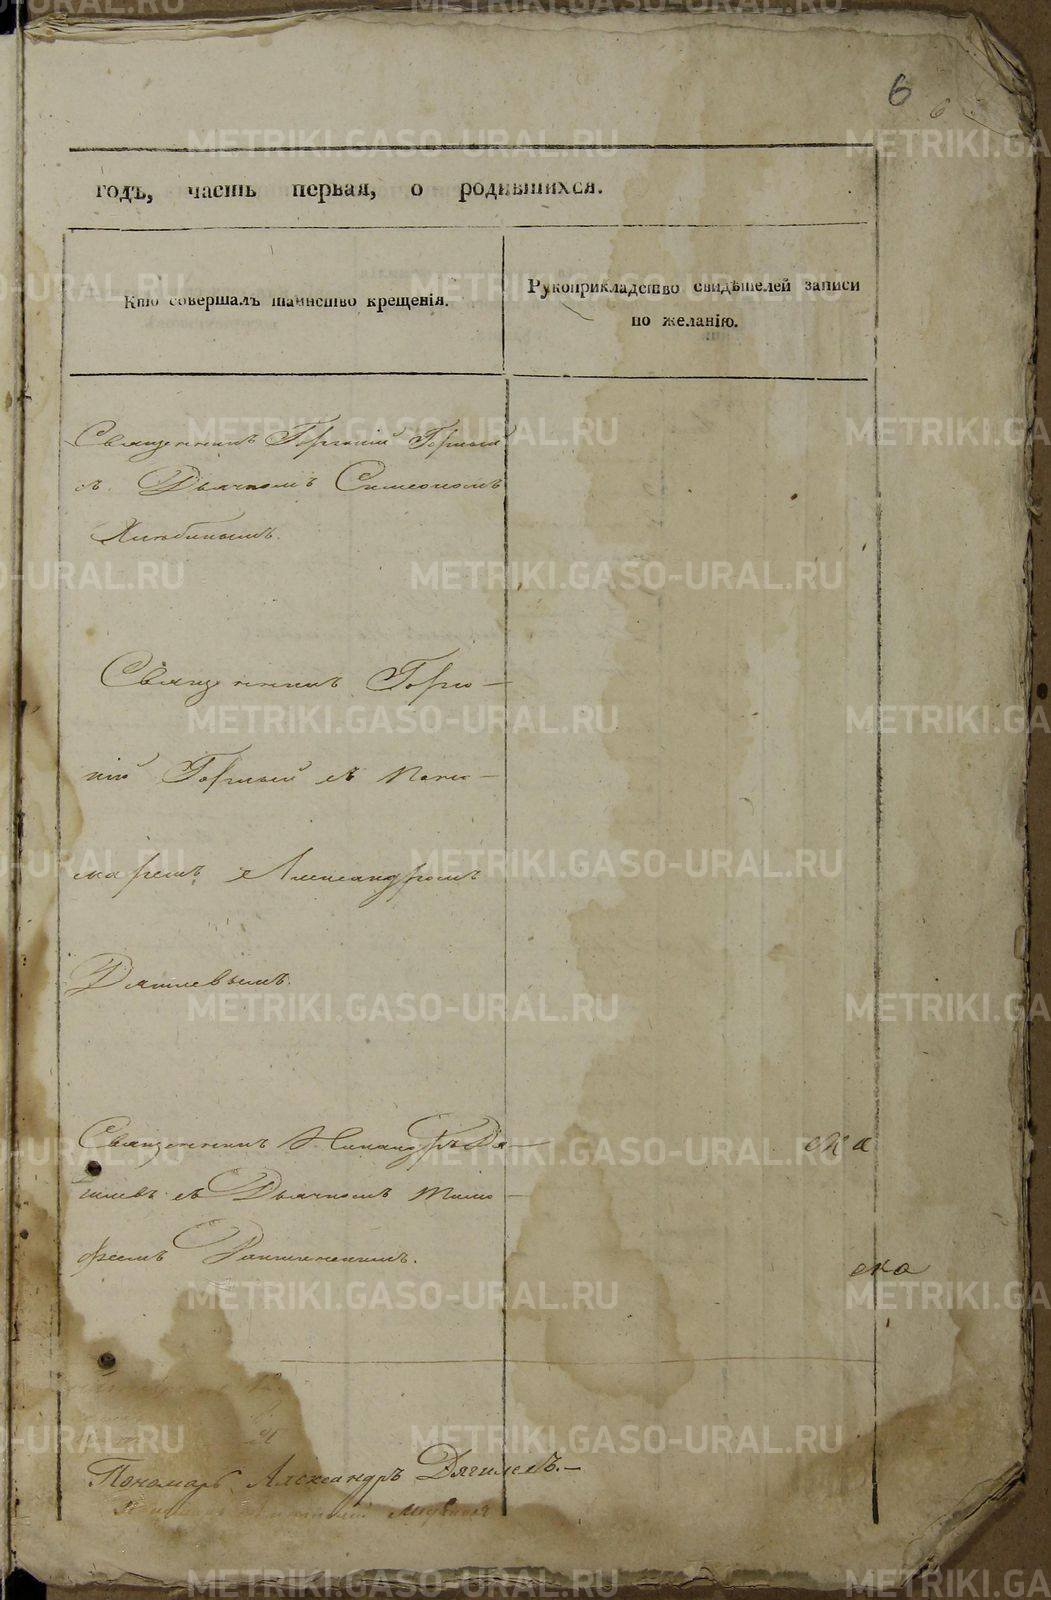 6 6
годъ, часть первая, о родившихся.
Кто совершалъ таинство крещенія.
Рукоприкладство свидѣтелей записи
по желанію.
Священникъ Горгоній Горный
съ Дьячкомъ Симеономъ
Хлѣбинымъ.
Священникъ Горго-
ній Горный съ Поно-
маремъ Александромъ
Дягилевымъ.
Священникъ Никандръ Дя-
гилевъ съ Дьячкомъ Тимо-
феемъ
ека
ека
Пономарь Александръ Дягилевъ.-
METRIKI.GASO-URAL.RU